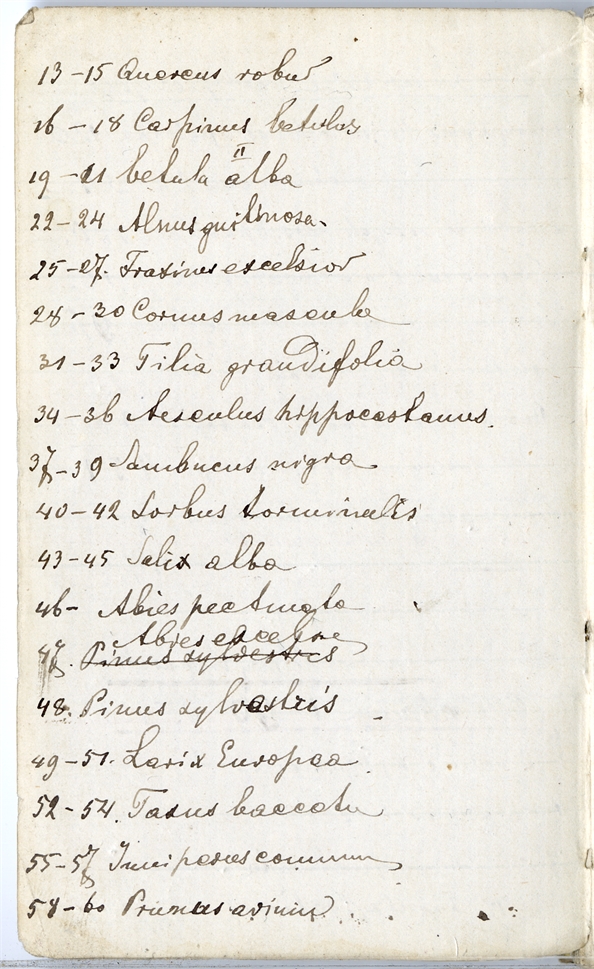 13-15 Quercus robur
16-18 Carpinus betulus
II
19-21 betula alba
22-24 Alnus glutinosa.
25-27. Fraxinus excelsior
28-30 Cornus mascula
31-33 Tilia grandifolia
34-36 Aesculus hippocastanus.
37-39 Sambucus nigra
40-42 Sorbus torminalis
43-45 Salix alba
46- Abies pectinata
Abies excelsa
47. Pinus sylvestris
48. Pinus sylvestris
49-51. Larix Europaea
52-54. Taxus baccata
55-57 Juniperus communis
58-60 Prunus avium